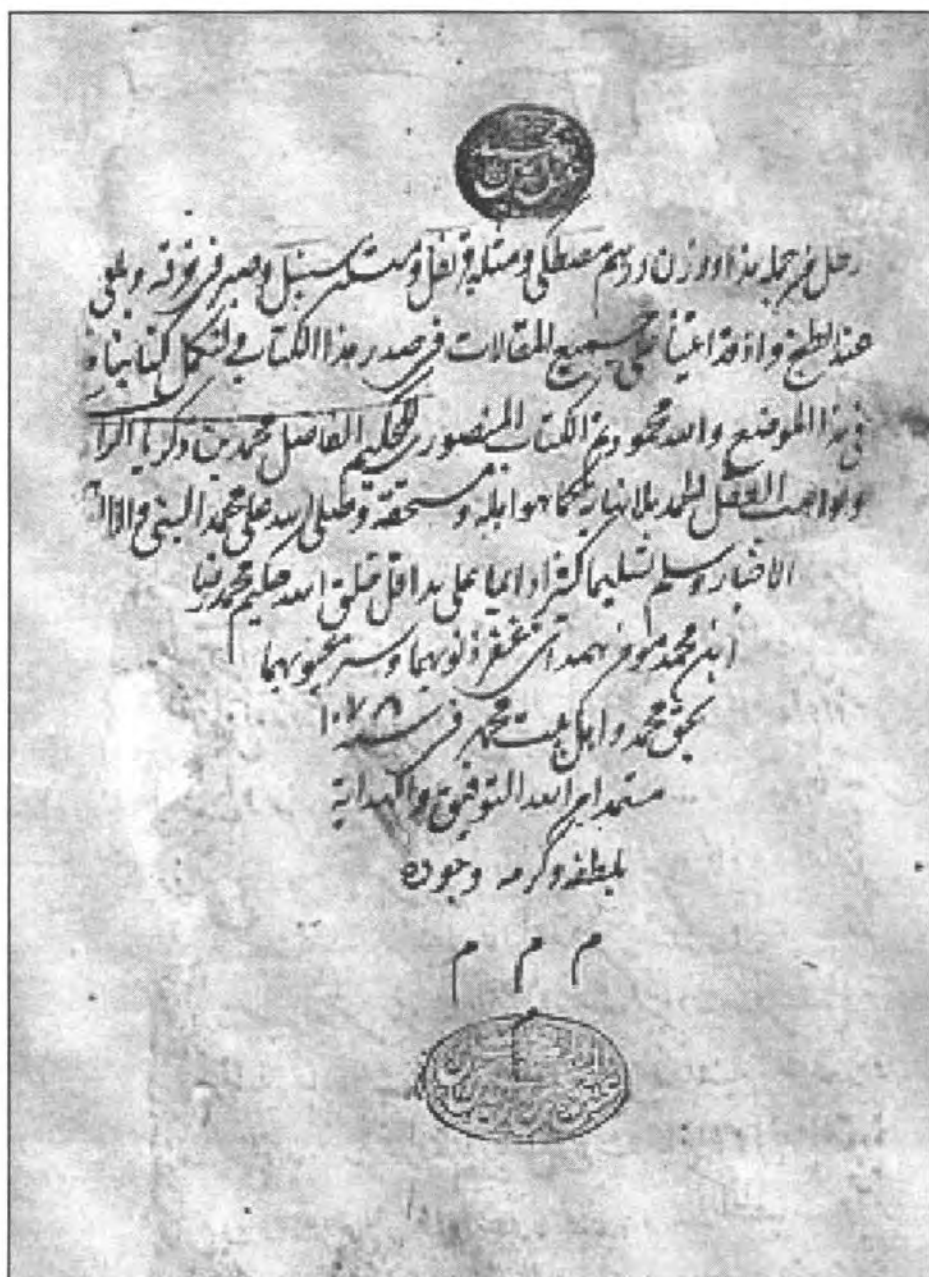 رطل من جملة هذا وزن درهم مصطكى ومثله قرنفل ومثله سنبل ويصير فى خرقة ويلقى
عند الطبخ واذ قد اتينا على جميع المقالات فى صدر هذا الكتاب فلنكمل كتابنا هذا
فى هذا الموضع والله محمود تم الكتاب المنصورى للحكيم الفاضل محمد بن زكريا الرازى
ولواهب العقل الحمد بلا نهاية كما هو اهله ومستحقه وصلى الله على محمد النبى واله
الاخيار وسلم تسليما كثيرا دايما على يد اقل خلق الله حكيم محمد
ابن محمد مومن همدانى غفر ذنوبهما وستر عيوبهما
بحق محمد واهل بيت محمد فى سنه ١٠٧٨
مستمدا من الله التوفيق والهداية
بلطفه وكرمه وجوده
م م م
م